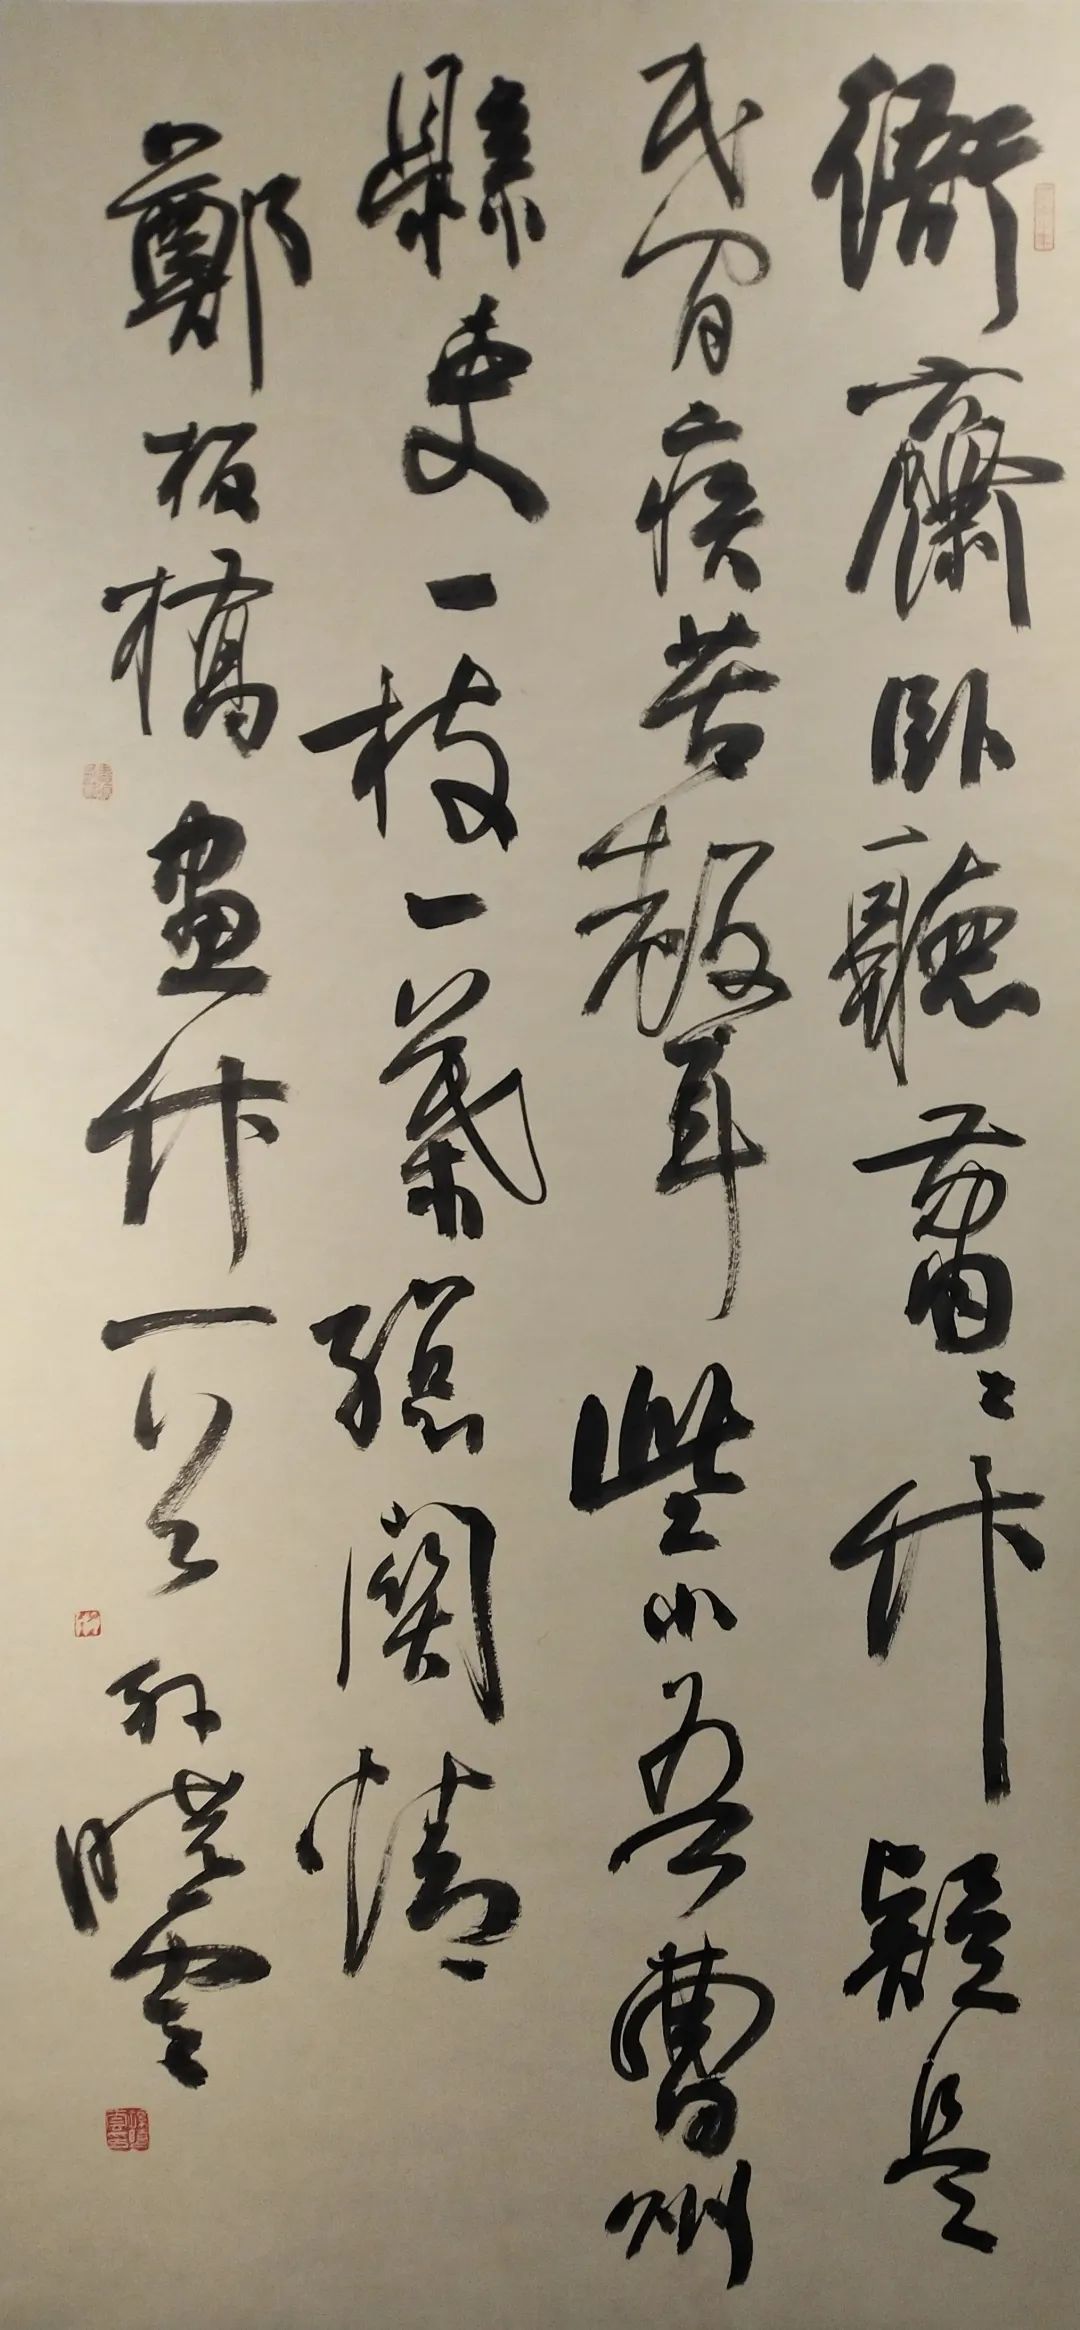 衙齋臥聽蕭〻竹疑是
民間疾苦聲些小吾曹州
縣吏一枝一葉總關情
鄭板橋畫竹一首 孫曉雲